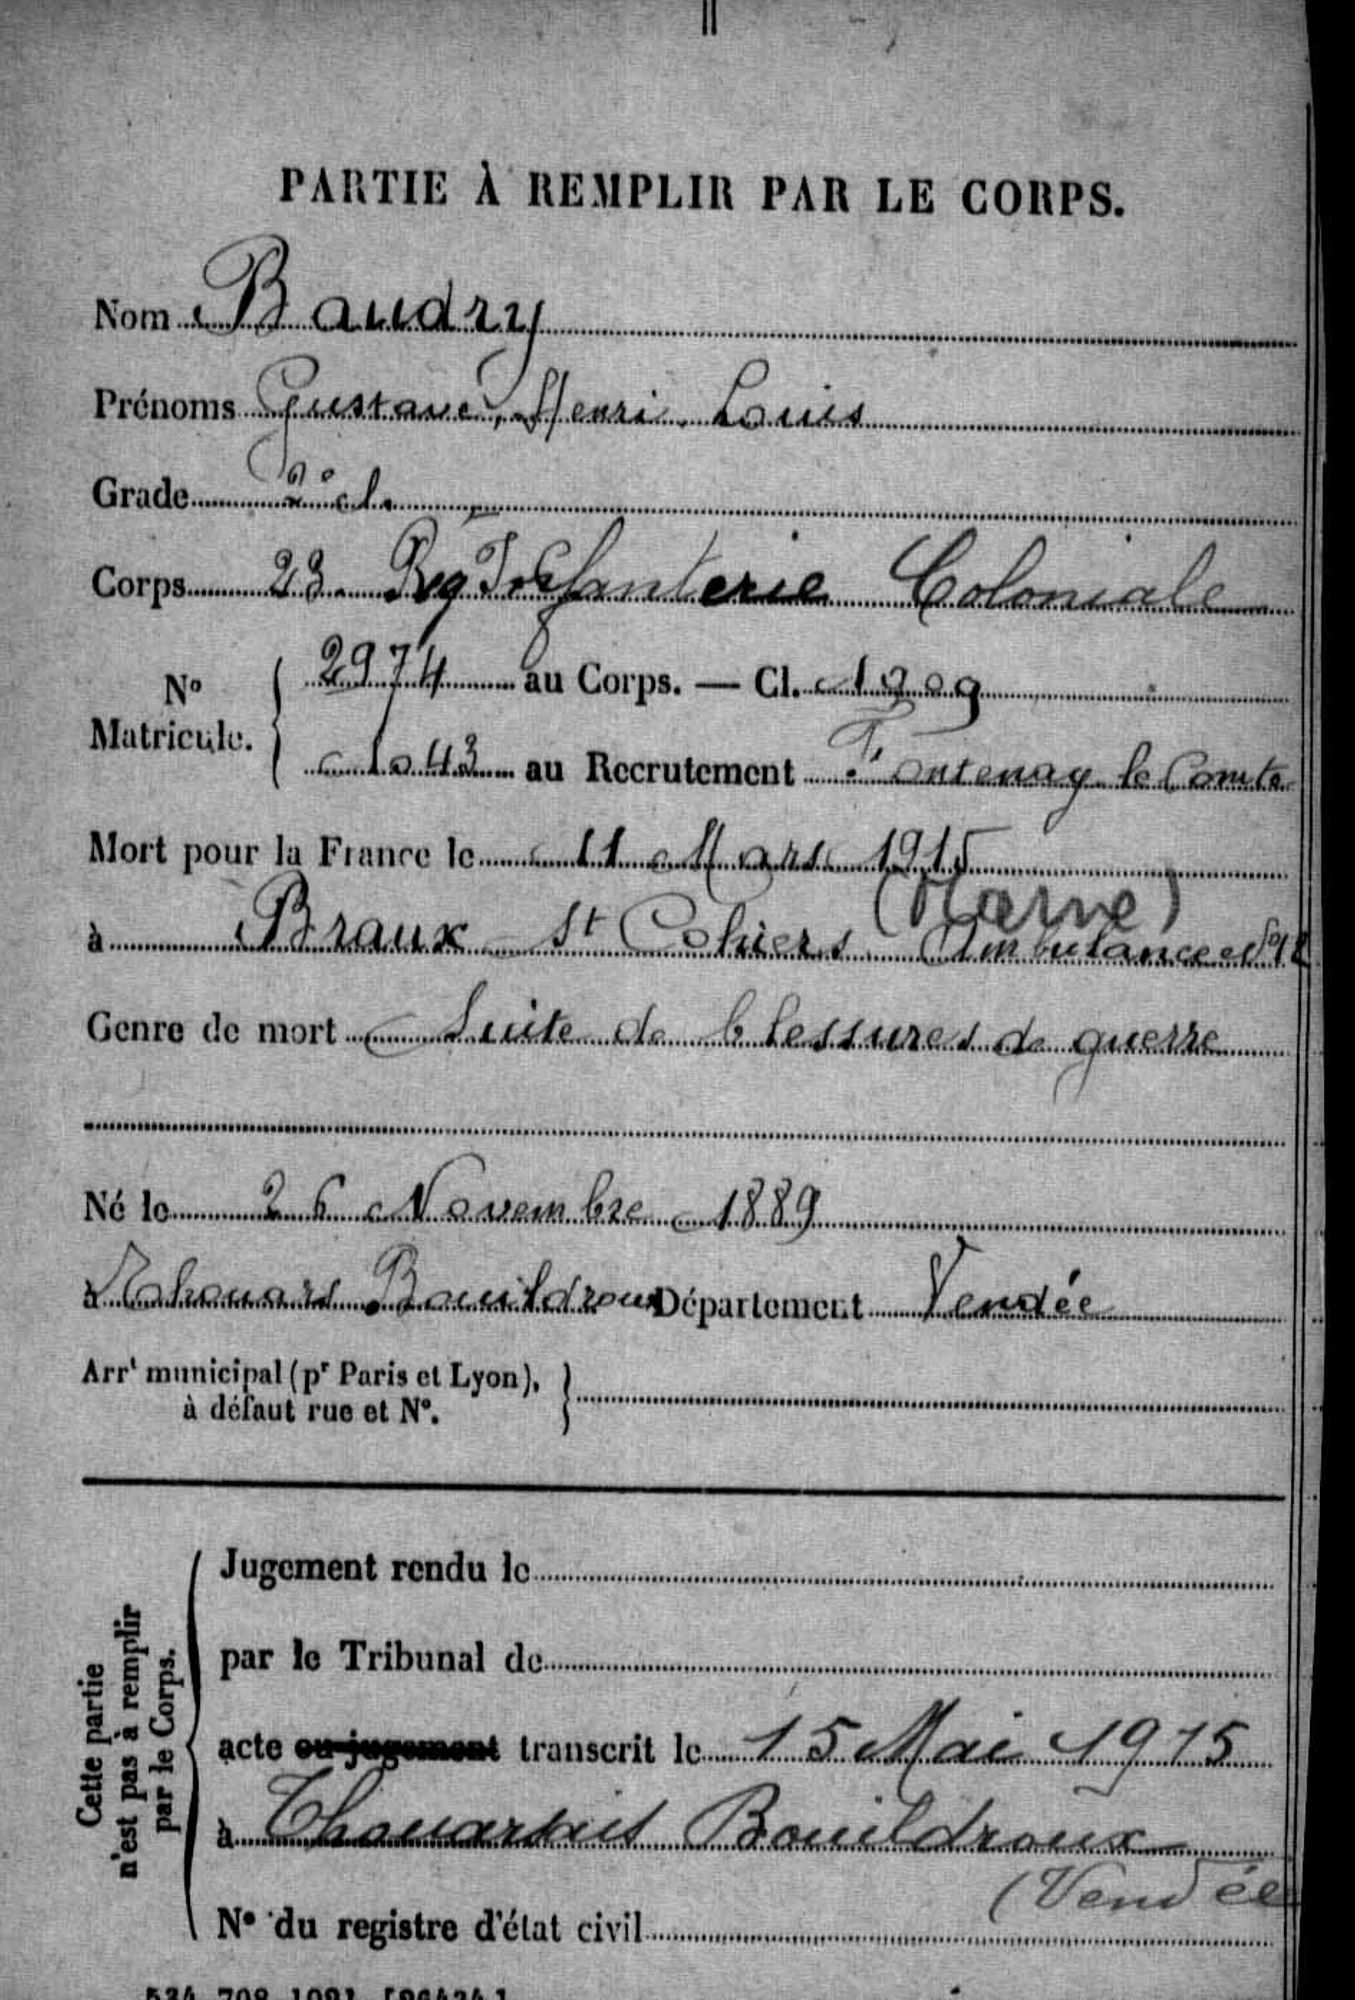 PARTIE À REMPLIR PAR LE CORPS.
Nom Baudry
Prénoms Gustave, Henri Louis
Grade 2e cl.
Corps 23. Rég Infanterie Coloniale
No Matricule. { 2974 au Corps. — Cl. 1909
1043 au Recrutement Fontenay le Comte
Mort pour la France le 11 Mars 1915
(Marne)
à Braux St Cohiers Ambulance
Genre de mort Suite de blessures de guerre
Né le 26 Novembre 1889
à Bouildroux Département Vendée
Arrt municipal (pr Paris et Lyon), }
à défaut rue et No.
Cette partie
n'est pas à remplir
par le Corps.
Jugement rendu le
par le Tribunal de
acte ou jugement transcrit le 15 Mai 1915
à Thouarsais Bouildroux
(Vendée
No du registre d'état civil
534 708 1921 [26434]